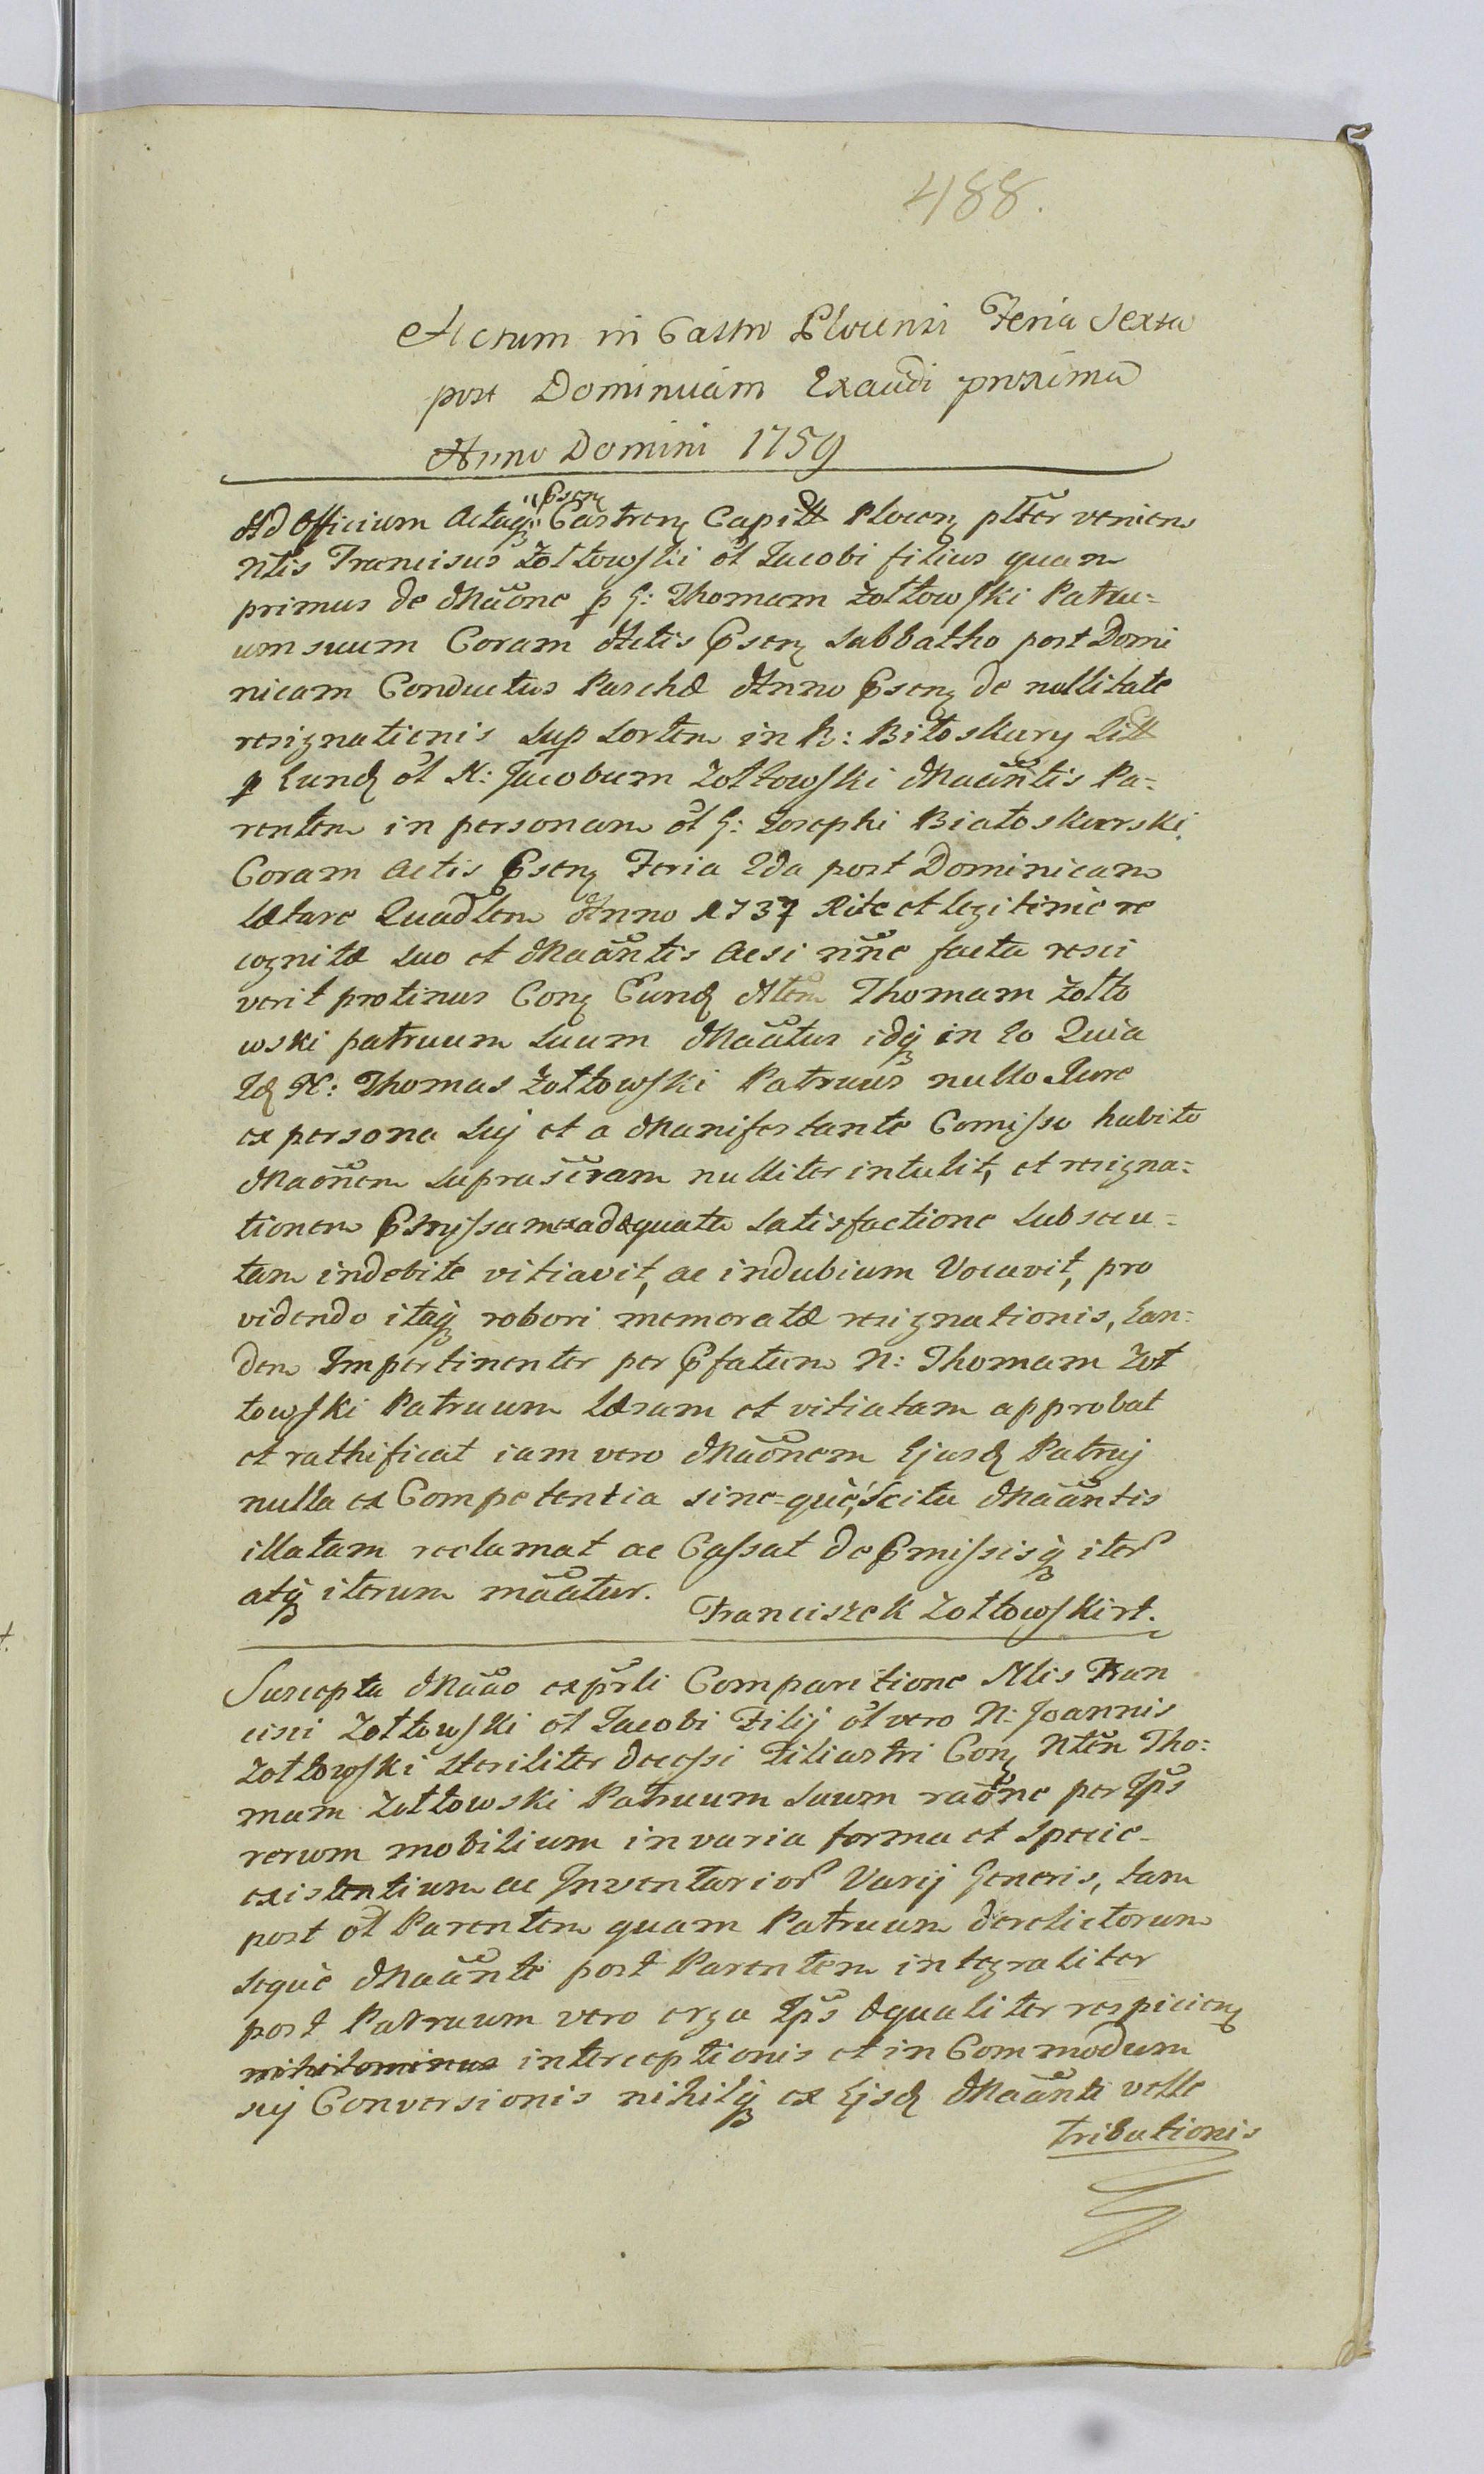 488.
Actum in Castro Plocensi Feria Sexta
post Dominicam Exaudi proxima
Anno Domini 1759
Ad Officium Actaq₃ "Psen₃ Castren₃ Capitt Plocen₃ pltter veniens
Nttis Franciscus Zołtowski ol Jacobi filius quam
primus de Mãõne p G: Thomam Zołtowski Patru=
um suum Coram Actis Psen₃ Sabbatho post Domi
nicam Conductus Paschæ Anno Psen₃ de nullitate
resignationis Sup Sortem in B: Białoskury Litt
p Eund ol N: Jacobum Zołtowski Mããntis Pa=
rentem in personam ol G: Josephi Białoskurski
Coram Actis Psen₃ Feria 2da post Dominicam
Lætare Quadlem Anno 1737 Rite et legitime re
cognitæ Suo et Mããntis Acsi nñc facta resci
verit protinus Con₃ Eund Ntem Thomam Zołto
wski patruum Suum Mããtur idq₃ in Eo Quia
Id N: Thomas Zołtowski Patruus nullo Jure
ex persona Suj et a Manifestante Comisso habito
Mãõnem suprascram nulliter intulit, et resigna=
tionem Pmissam ex adæquata Satisfactione Subsecu=
tam indebite vitiavit, ac indubium Vocavit, pro
videndo itaq₃ robori memoratæ resignationis, Ean=
dem Impertinenter per Pfatum N: Thomam Zoł
towski Patruum Læsam et vitiatam approbat
et rathificat iam vero Mãõnem Ejusd Patruj
nulla ex Competentia sine=què, Scitu Mããntis
illatam reclamat ac Cassat de Pmissisq₃ iter
atq₃ iterum mããtur.
Franciszek Zołtowski rt.
Suscepta Mããõ ex prli Comparitione Nlis Fran
cisci Zołtowski ol Jacobi Filij ol vero N: Joannis
Zołtowski steriliter decessi Filiastri Con₃ Ntem Tho=
mam Zołtowski Patruum Suum raõne per Ips
rerum mobilium in varia forma et Specie
existentium ac Inventarior Varij Generis, tam
post ol Parentem quam Patruum derelictorum
Seque Mããnte post Parentem integraliter
post Patruum vero erga Ips æqualiter respicien₃
nihilominus interceptionis et in Commodum
suj Conversionis nihilq₃ ex Ejsd Mããnti velle
tributionis